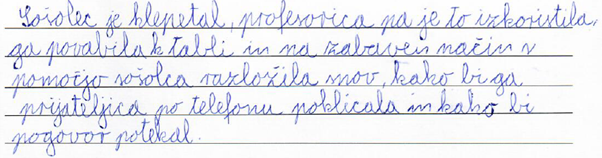 Sošolec je klepetal, profesorica pa je to izkoristila,
ga povabila k tabli in na zabaven način s
pomočjo sošolca razložila snov, kako bi ga
prijateljica po telefonu poklicala in kako bi
pogovor potekal.